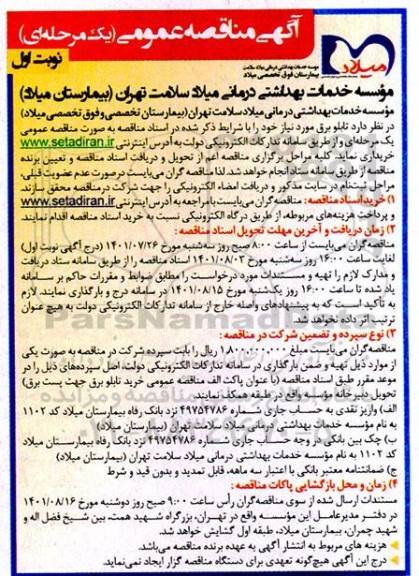 آگهی مناقصه عمومی (یک مرحله‌ای)
نوبت اول
میلاد
موسسه خدمات بهداشتی درمانی میلاد سلامت
بیمارستان فوق تخصصی میلاد
مؤسسه خدمات بهداشتی درمانی میلاد سلامت تهران (بیمارستان میلاد)
مؤسسه خدمات بهداشتی درمانی میلاد سلامت تهران (بیمارستان تخصصی و فوق تخصصی میلاد)
در نظر دارد تابلو برق مورد نیاز خود را با شرایط ذکر شده در اسناد مناقصه به صورت مناقصه عمومی
یک مرحله‌ای و از طریق سامانه تدارکات الکترونیکی دولت به آدرس اینترنتی www.setadiran.ir
خریداری نماید. کلیه مراحل برگزاری مناقصه اعم از تحویل و دریافت اسناد مناقصه و تعیین برنده
مناقصه از طریق سامانه ستاد انجام خواهد شد. لذا مناقصه گران می‌بایست در صورت عدم عضویت قبلی،
مراحل ثبت‌نام در سایت مذکور و دریافت امضاء الکترونیکی را جهت شرکت در مناقصه محقق سازند.
۱) خرید اسناد مناقصه: مناقصه گران می‌بایست با مراجعه به آدرس اینترنتی www.setadiran.ir
و پرداخت هزینه‌های مربوطه، از طریق درگاه الکترونیکی نسبت به خرید اسناد مناقصه اقدام نمایند.
۲) زمان دریافت و آخرین مهلت تحویل اسناد مناقصه:
مناقصه‌گران می‌بایست از ساعت ۸:۰۰ صبح روز سه‌شنبه مورخ ۱۴۰۱/۰۷/۲۶ (درج آگهی نوبت اول)
لغایت ساعت ۱۶:۰۰ روز سه‌شنبه مورخ ۱۴۰۱/۰۸/۰۳ اسناد مناقصه را از طریق سامانه ستاد دریافت
و مدارک لازم را تهیه و مستندات مورد درخواست را مطابق ضوابط و مقررات حاکم بر سامانه
یاد شده تا ساعت ۱۶:۰۰ روز یک‌شنبه مورخ ۱۴۰۱/۰۸/۱۵ در سامانه درج و بارگذاری نمایند. لازم
به تأکید است که به پیشنهادهای واصله خارج از سامانه تدارکات الکترونیکی دولت به هیچ عنوان
ترتیب اثر داده نخواهد شد.
۳) نوع سپرده و تضمین شرکت در مناقصه:
مناقصه‌گران می‌بایست مبلغ ۱.۸۰۰.۰۰۰.۰۰۰ ریال را بابت سپرده شرکت در مناقصه به صورت یکی
از موارد ذیل تهیه و ضمن بارگذاری در سامانه تدارکات الکترونیکی دولت، اصل سپرده‌های ذیل را در
موعد مقرر طبق اسناد مناقصه (با عنوان پاکت الف مناقصه عمومی خرید تابلو برق جهت پست برق)
تحویل دبیرخانه موسسه واقع در طبقه همکف نمایند.
الف) واریز نقدی به حساب جاری شماره ۴۹۷۵۴۷۸۶ نزد بانک رفاه بیمارستان میلاد کد ۱۱۰۲
به نام مؤسسه خدمات بهداشتی درمانی میلاد سلامت تهران (بیمارستان میلاد)
ب) چک بین بانکی در وجه حساب جاری شماره ۴۹۷۵۴۷۸۶ نزد بانک رفاه بیمارستان میلاد
کد ۱۱۰۲ به نام مؤسسه خدمات بهداشتی درمانی میلاد سلامت تهران (بیمارستان میلاد)
ج) ضمانتنامه معتبر بانکی با اعتبار سه ماهه، قابل تمدید و بدون قید و شرط
۴) زمان و محل بازگشایی پاکات مناقصه:
مستندات ارسال شده از سوی مناقصه‌گران رأس ساعت ۹:۰۰ صبح روز دوشنبه مورخ ۱۴۰۱/۰۸/۱۶
در دفتر مدیرعامل این مؤسسه واقع در تهران، بزرگراه شهید همت، بین شیخ فضل اله و
شهید چمران، بیمارستان میلاد، طبقه اول گشایش خواهد شد.
هزینه های مربوط به انتشار آگهی به عهده برنده مناقصه می‌باشد.
درج این آگهی هیچ‌گونه تعهدی برای دستگاه مناقصه گزار ایجاد نمی‌نماید.